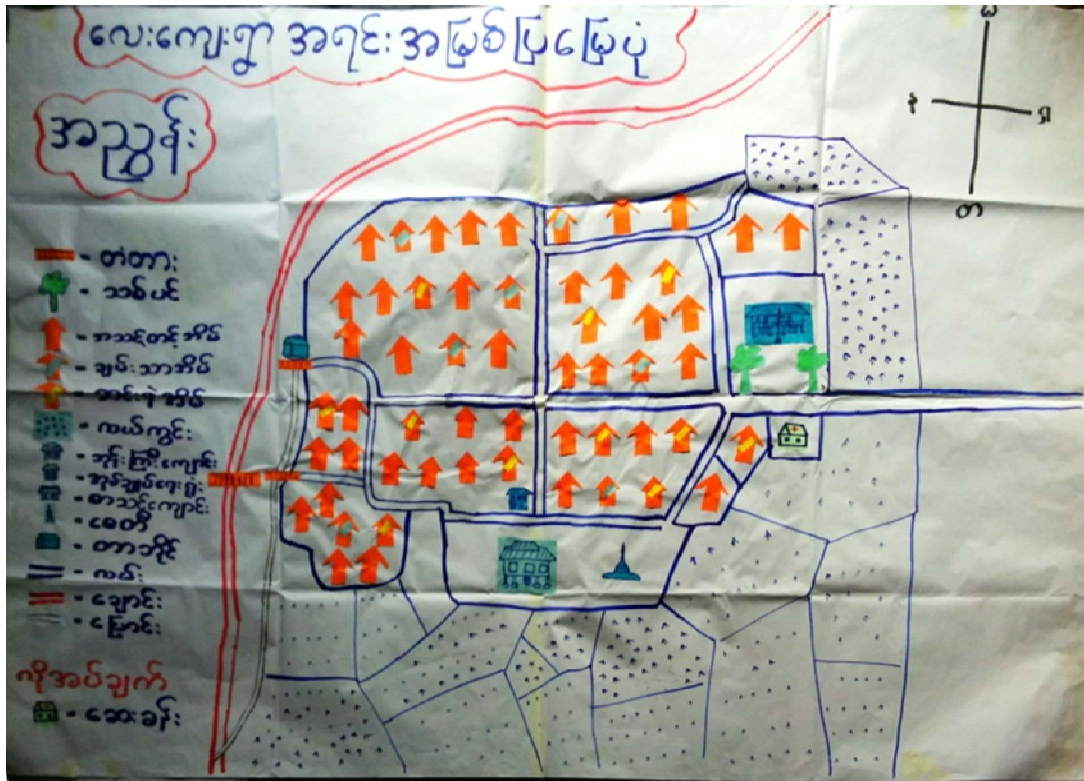 လေးကျေးရွာ အရင်းအမြစ်ပြမြေပုံ
အညွှန်း
- တံတား
- သစ်ပင်
- အသင့်တင့်အိမ်
- ချမ်းသာအိမ်
- ဆင်းရဲအိမ်
- လယ်ကွင်း
- ဘုန်းကြီးကျောင်း
- အုပ်ချုပ်ရေးရုံး
- စာသင်ကျောင်း
- စေတီ
- လမ်း
- ချောင်း
- မြောင်း
လိုအပ်ချက်
- ဆေးခန်း